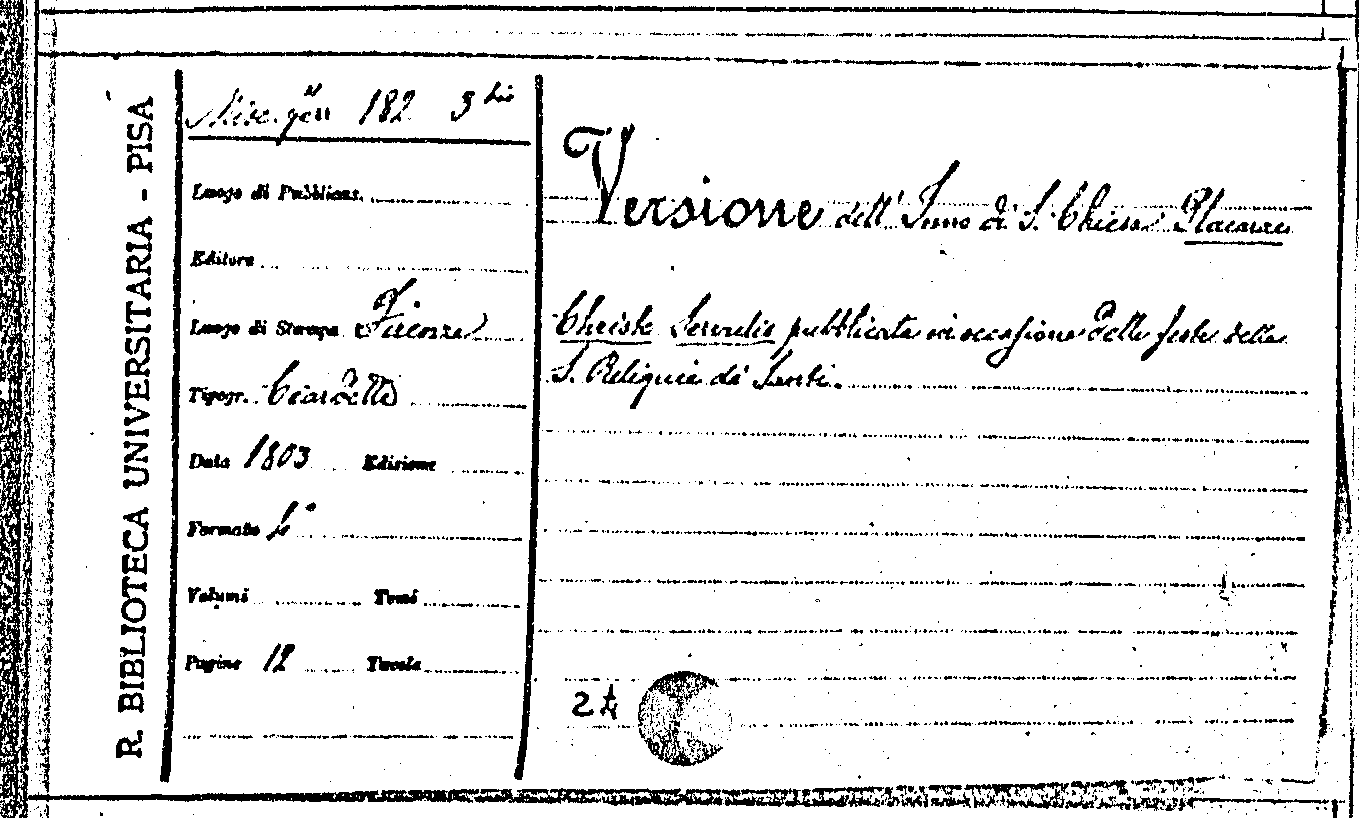 R. BIBLIOTECA UNIVERSITARIA - PISA
182 3 bis
Luogo di Pubblicaz.
Editore
Luogo di Stampa Firenze
Tipogr. Ciardetti
Data 1803 Edizione
Formato
Volumi Tomi
Pagine 12 Tavole
Versione dell' Inno di S. Chiesa Placare
Christe Servulis pubblicata in occasione delle feste delle
S. Reliquie di Santi.